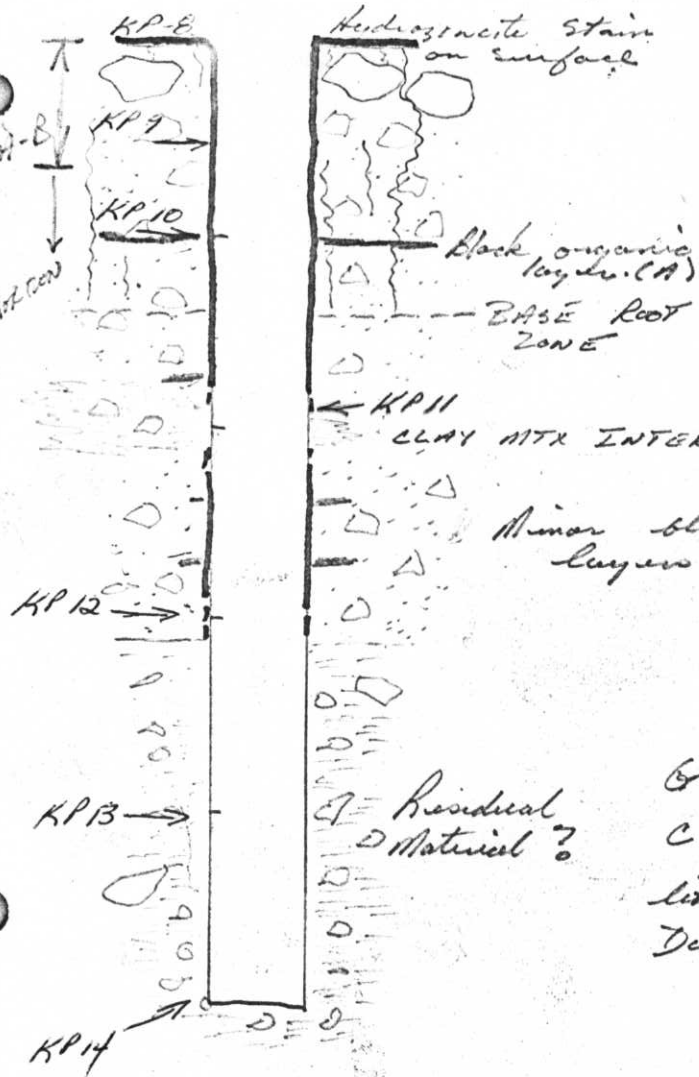 KP-8
Hydrozincite Stain
on Surface
KP9
KP10
Black organic
layer (A)
BASE ROOT
ZONE
KP11
CLAY MTX INTER
Minor bl
layer
KP12
KP13
Residual
Material ?
G
C
Do
KP14